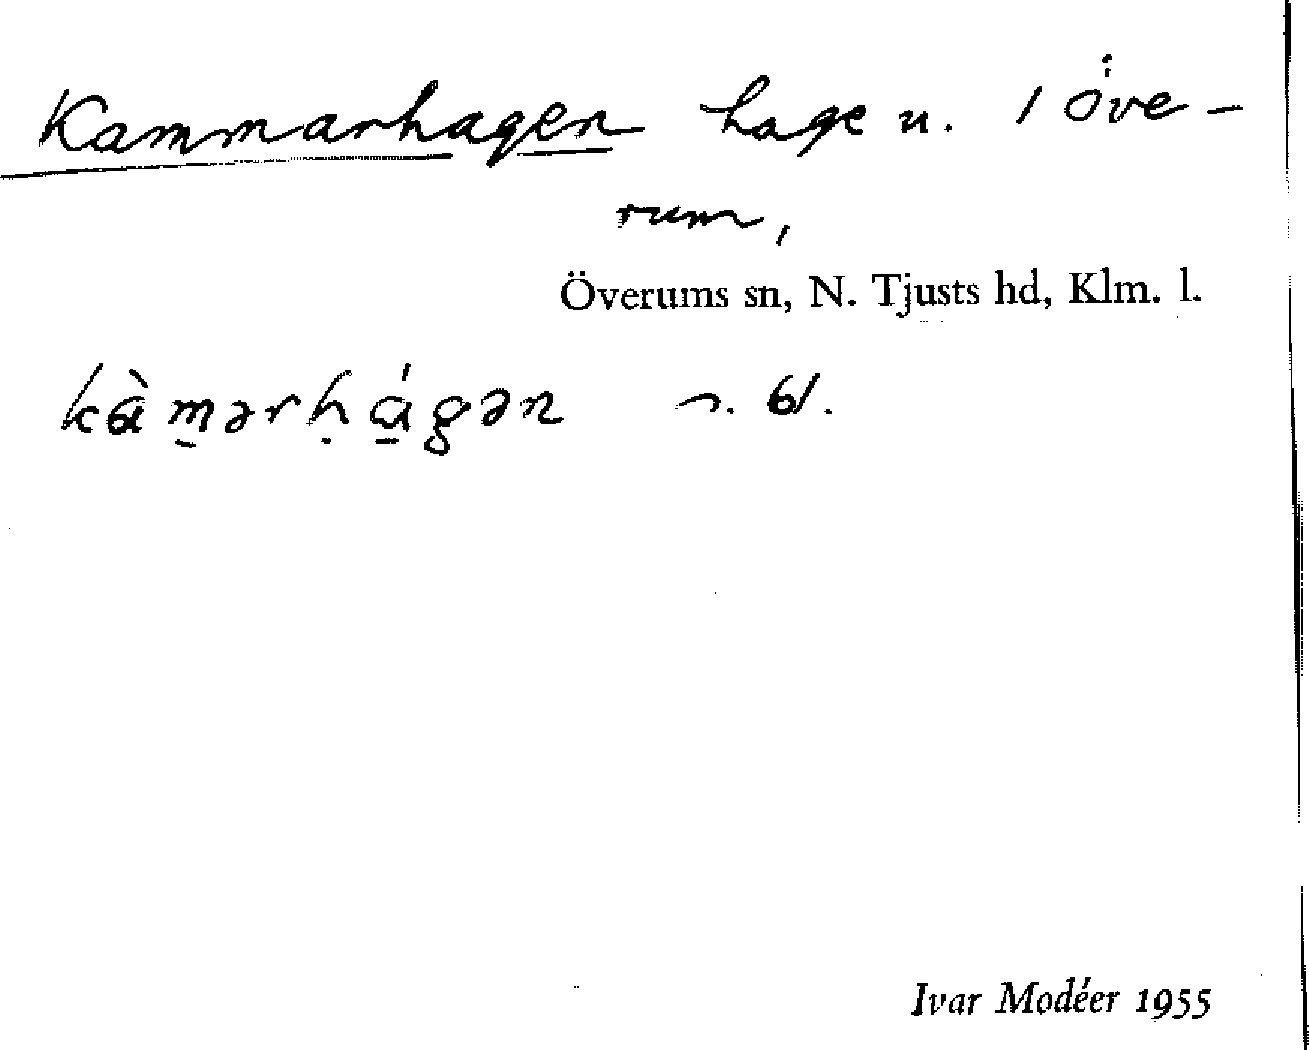 Kammarhagen hage u. 1 Öve-
rum,
Överums sn, N. Tjusts hd, Klm. l.
kàm̲ərḥɑ̲́gən
Ivar Modéer 1955